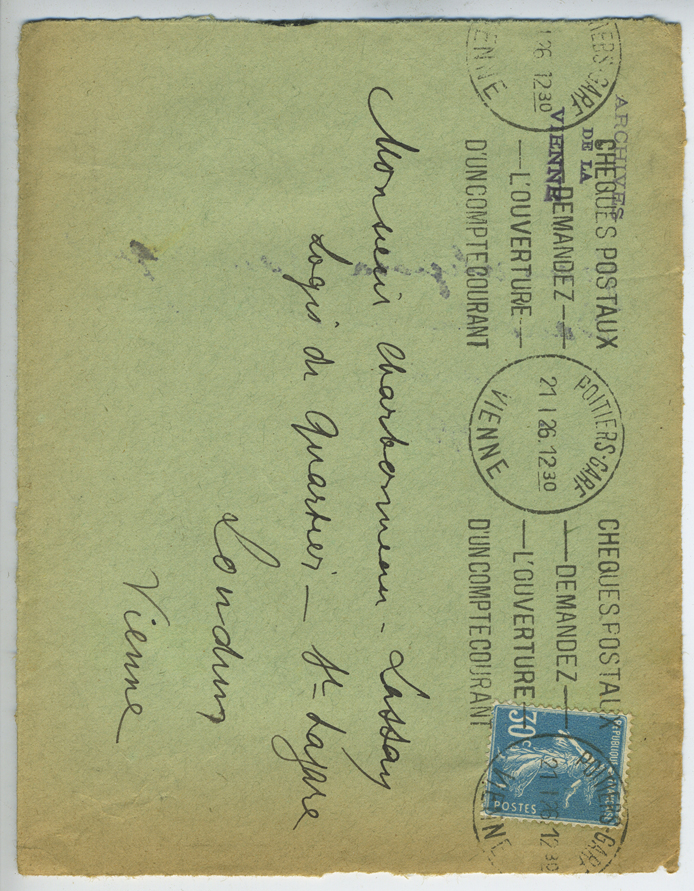 POITIERS-GARE
1 26 12 30
VIENNE
ARCHIVES
DE LA
VIENNE
CHEQUES POSTAUX
DEMANDEZ
L'OUVERTURE
D'UN COMPTE COURANT
POITIERS-GARE
21 I 26. 12 30
VIENNE
CHEQUES POSTAUX
DEMANDEZ
L'OUVERTURE
D'UN COMPTE COURANT
REPUBLIQUE FRANÇAISE
30c
POSTES
POITIERS-GARE
21 I 26 12 30
VIENNE
Monsieur Charbonneau-Lassay
Logis du Quartier — St-Lazare
Loudun
Vienne